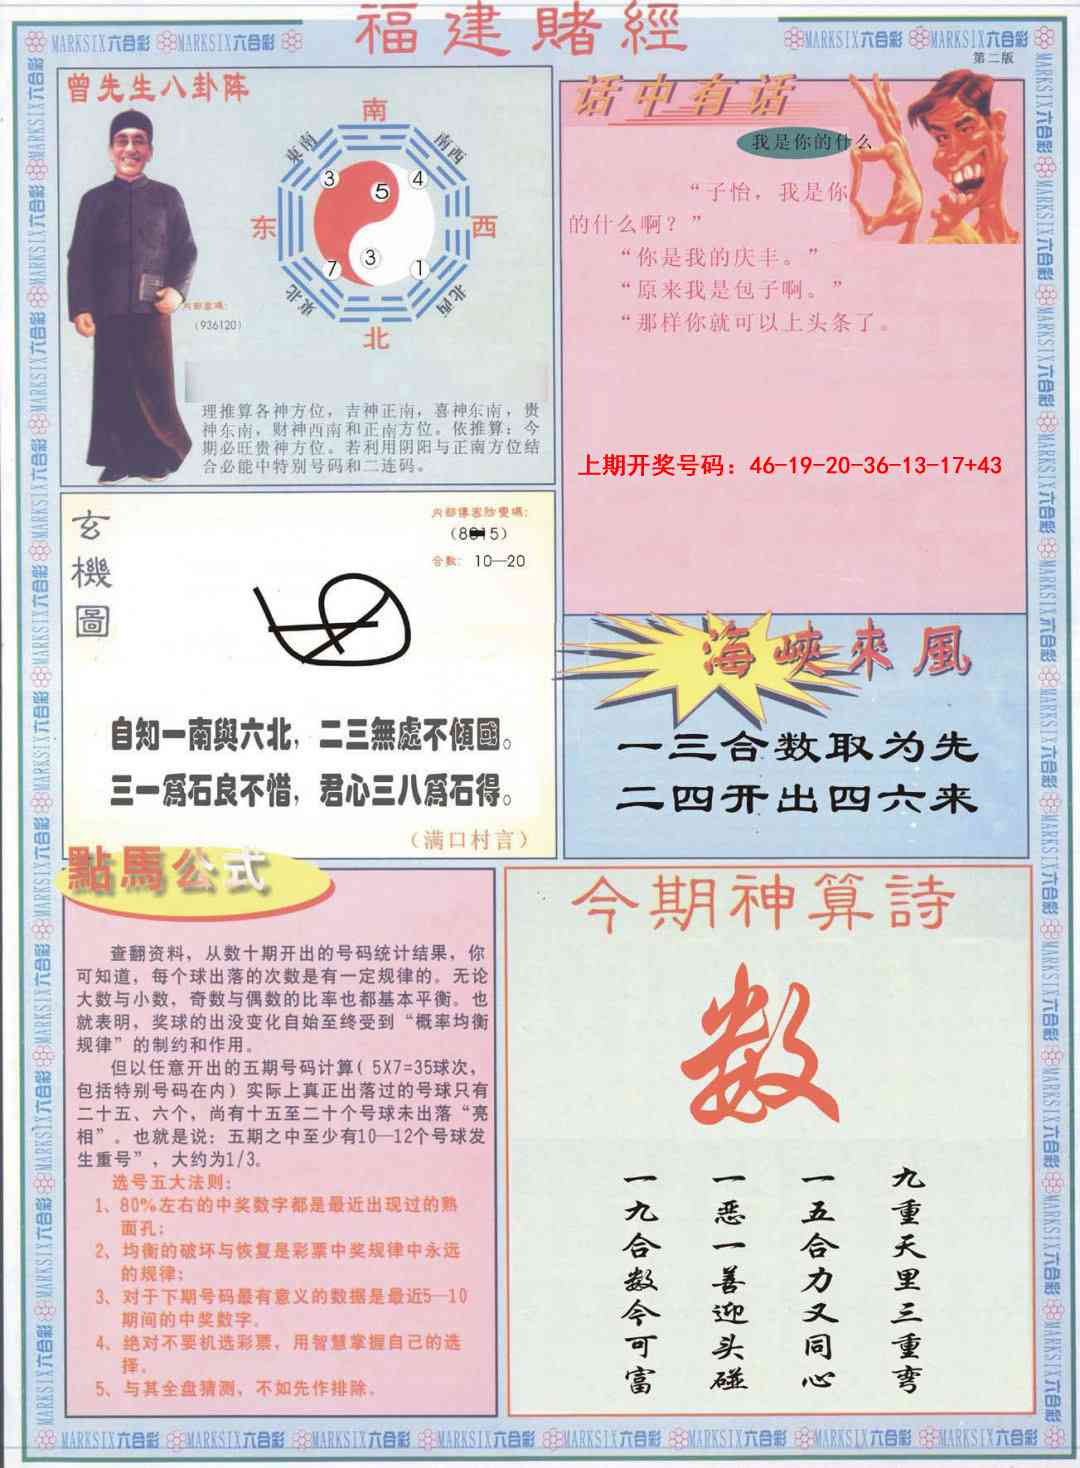 福建賭經
MARKSIX六合彩 MARKSIX六合彩
MARKSIX六合彩 MARKSIX六合彩
第二版
曾先生八卦阵
南
東南
南西
3
5
4
东
西
7
3
1
東北
北西
北
内部密碼：
（936120）
理推算各神方位，吉神正南，喜神东南，贵
神东南，财神西南和正南方位。依推算：今
期必旺贵神方位。若利用阴阳与正南方位结
合必能中特别号码和二连码。
话中有话
我是你的什么
“子怡，我是你
的什么啊？”
“你是我的庆丰。”
“原来我是包子啊。”
“那样你就可以上头条了。
上期开奖号码：46-19-20-36-13-17+43
玄機圖
内部傳密防變碼：
合数：10—20
自知一南與六北，二三無處不傾國。
三一爲石良不惜，君心三八爲石得。
（满口村言）
海峽來風
一三合数取为先
二四开出四六来
點馬公式
查翻资料，从数十期开出的号码统计结果，你
可知道，每个球出落的次数是有一定规律的。无论
大数与小数，奇数与偶数的比率也都基本平衡。也
就表明，奖球的出没变化自始至终受到“概率均衡
规律”的制约和作用。
但以任意开出的五期号码计算（5X7=35球次，
包括特别号码在内）实际上真正出落过的号球只有
二十五、六个，尚有十五至二十个号球未出落“亮
相”。也就是说：五期之中至少有10—12个号球发
生重号”，大约为1/3。
选号五大法则：
1、80%左右的中奖数字都是最近出现过的熟
面孔；
2、均衡的破坏与恢复是彩票中奖规律中永远
的规律；
3、对于下期号码最有意义的数据是最近5—10
期间的中奖数字。
4、绝对不要机选彩票，用智慧掌握自己的选
择。
5、与其全盘猜测，不如先作排除。
今期神算詩
数
九重天里三重弯
一五合力又同心
一恶一善迎头碰
一九合数今可富
MARKSIX六合彩 MARKSIX六合彩 MARKSIX六合彩 MARKSIX六合彩 MARKSIX六合彩 MARKSIX六合彩 MARKSIX六合彩 MARKSIX六合彩